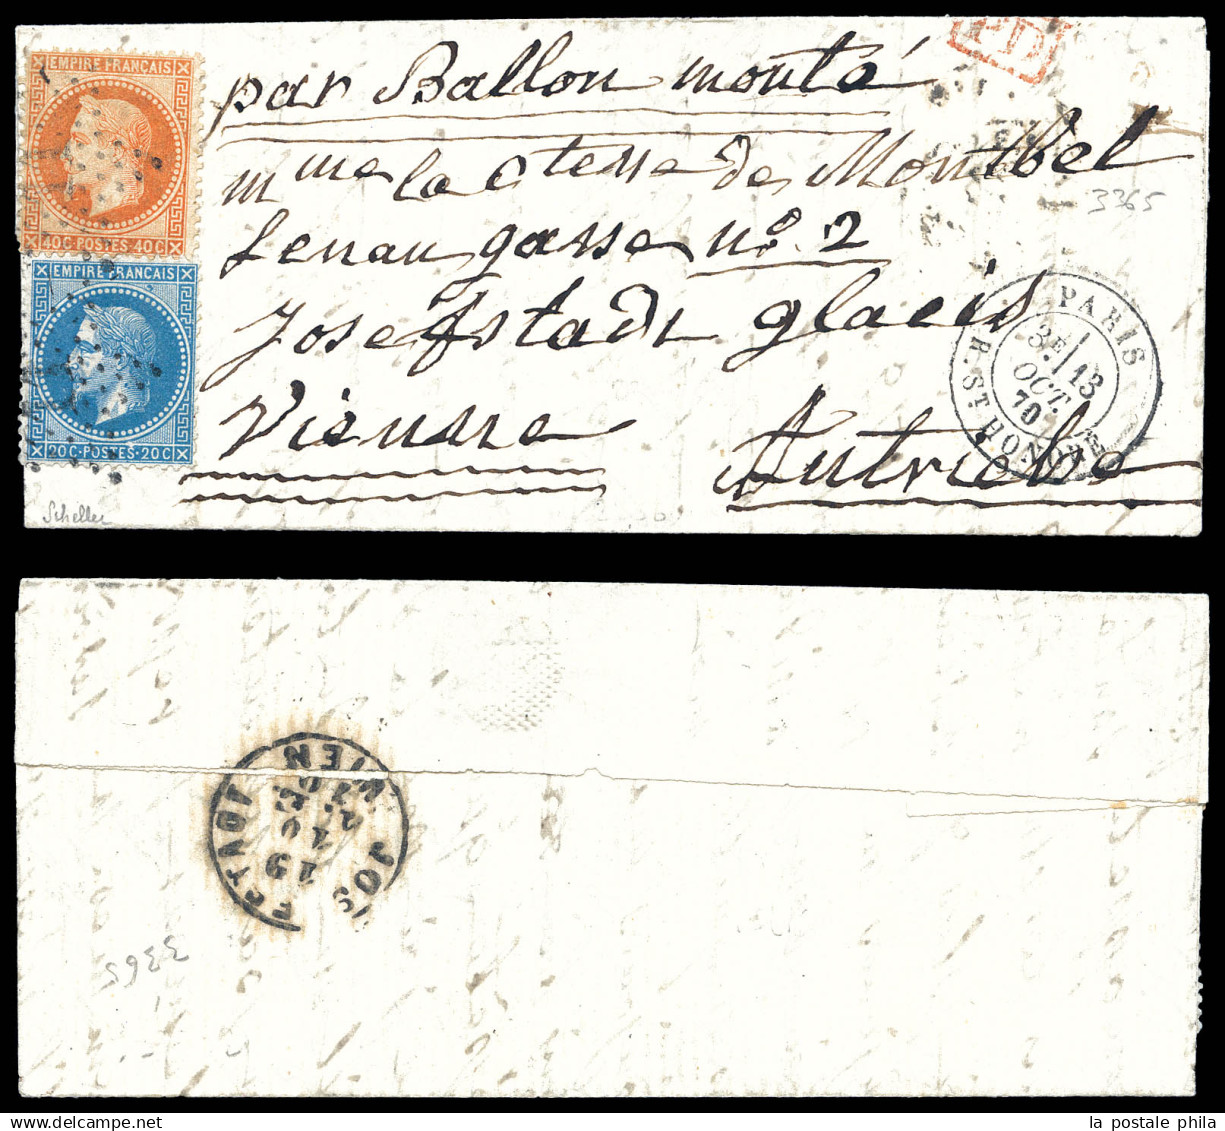 EMPIRE FRANÇAIS
40C·POSTES·40C
EMPIRE FRANÇAIS
20C·POSTES·20C
PD
par Ballon monté
mme la Ctesse de Montbel
Lenau gasse no. 2
Josefstadt glacis
Vienne
Autriche
3365
PARIS
3E/13
OCT.
70
R. ST. HONORÉ
Scheller
JOSEFSTADT
WIEN
19
10
3365
la postale phila